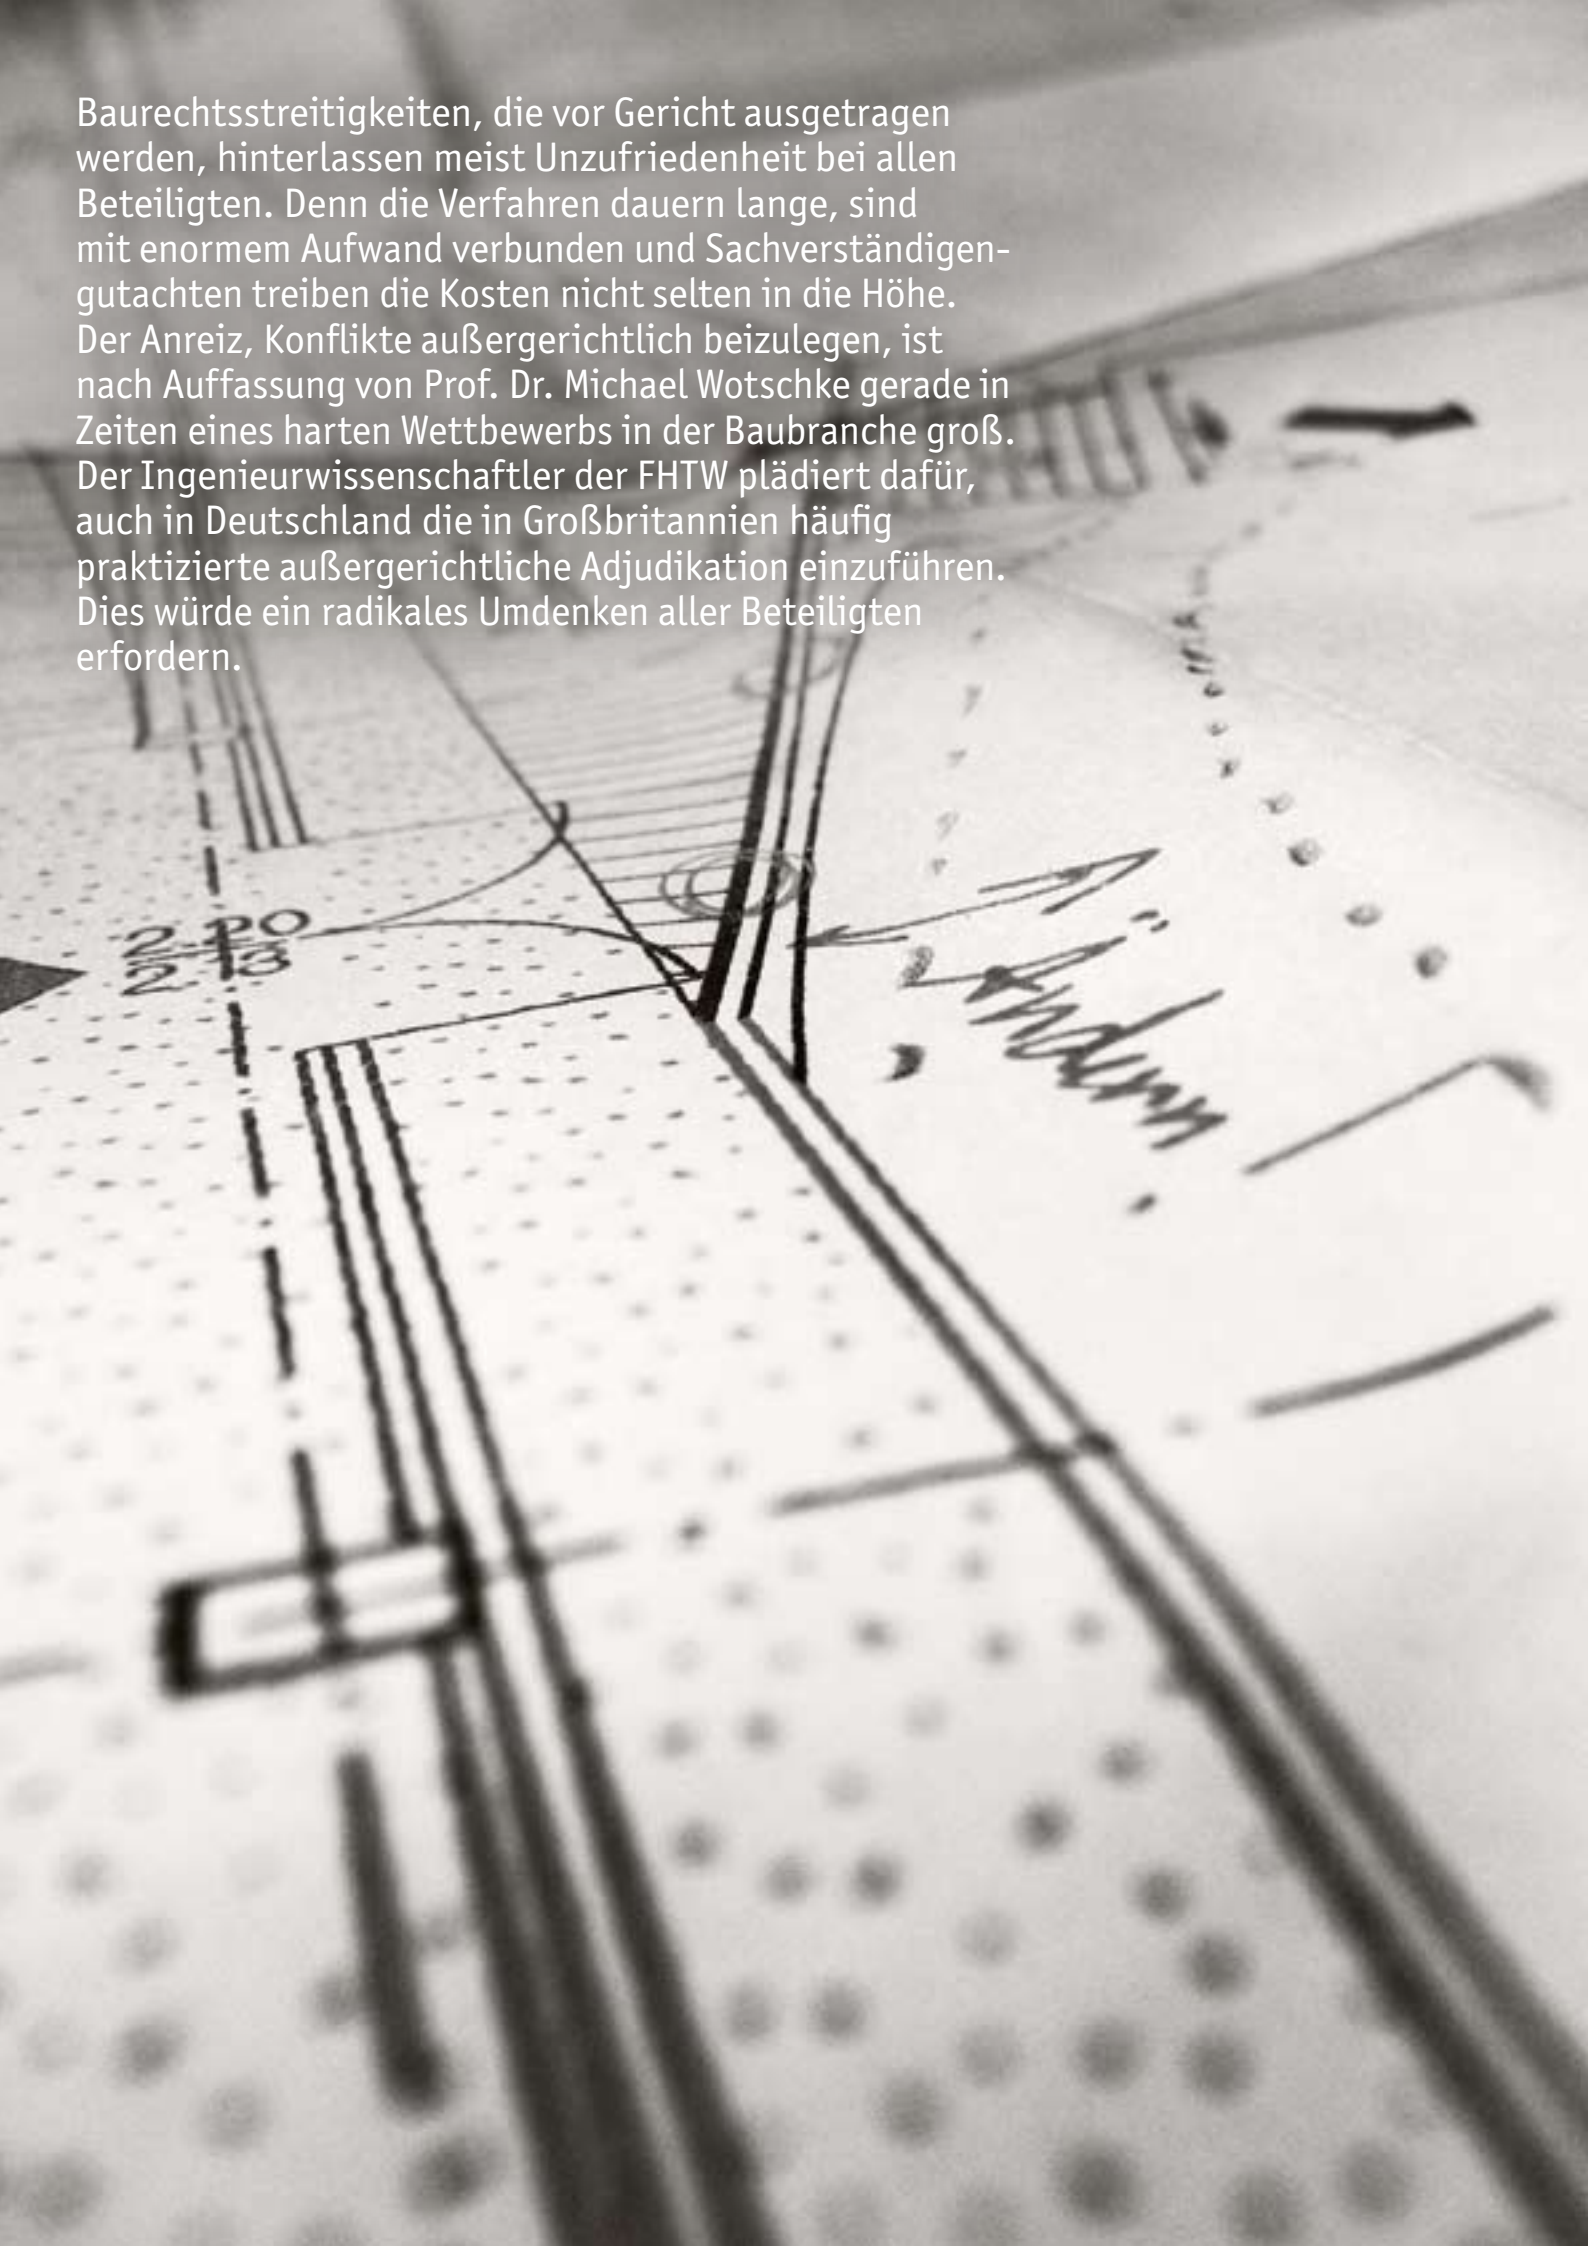 Baurechtsstreitigkeiten, die vor Gericht ausgetragen
werden, hinterlassen meist Unzufriedenheit bei allen
Beteiligten. Denn die Verfahren dauern lange, sind
mit enormem Aufwand verbunden und Sachverständigen-
gutachten treiben die Kosten nicht selten in die Höhe.
Der Anreiz, Konflikte außergerichtlich beizulegen, ist
nach Auffassung von Prof. Dr. Michael Wotschke gerade in
Zeiten eines harten Wettbewerbs in der Baubranche groß.
Der Ingenieurwissenschaftler der FHTW plädiert dafür,
auch in Deutschland die in Großbritannien häufig
praktizierte außergerichtliche Adjudikation einzuführen.
Dies würde ein radikales Umdenken aller Beteiligten
erfordern.